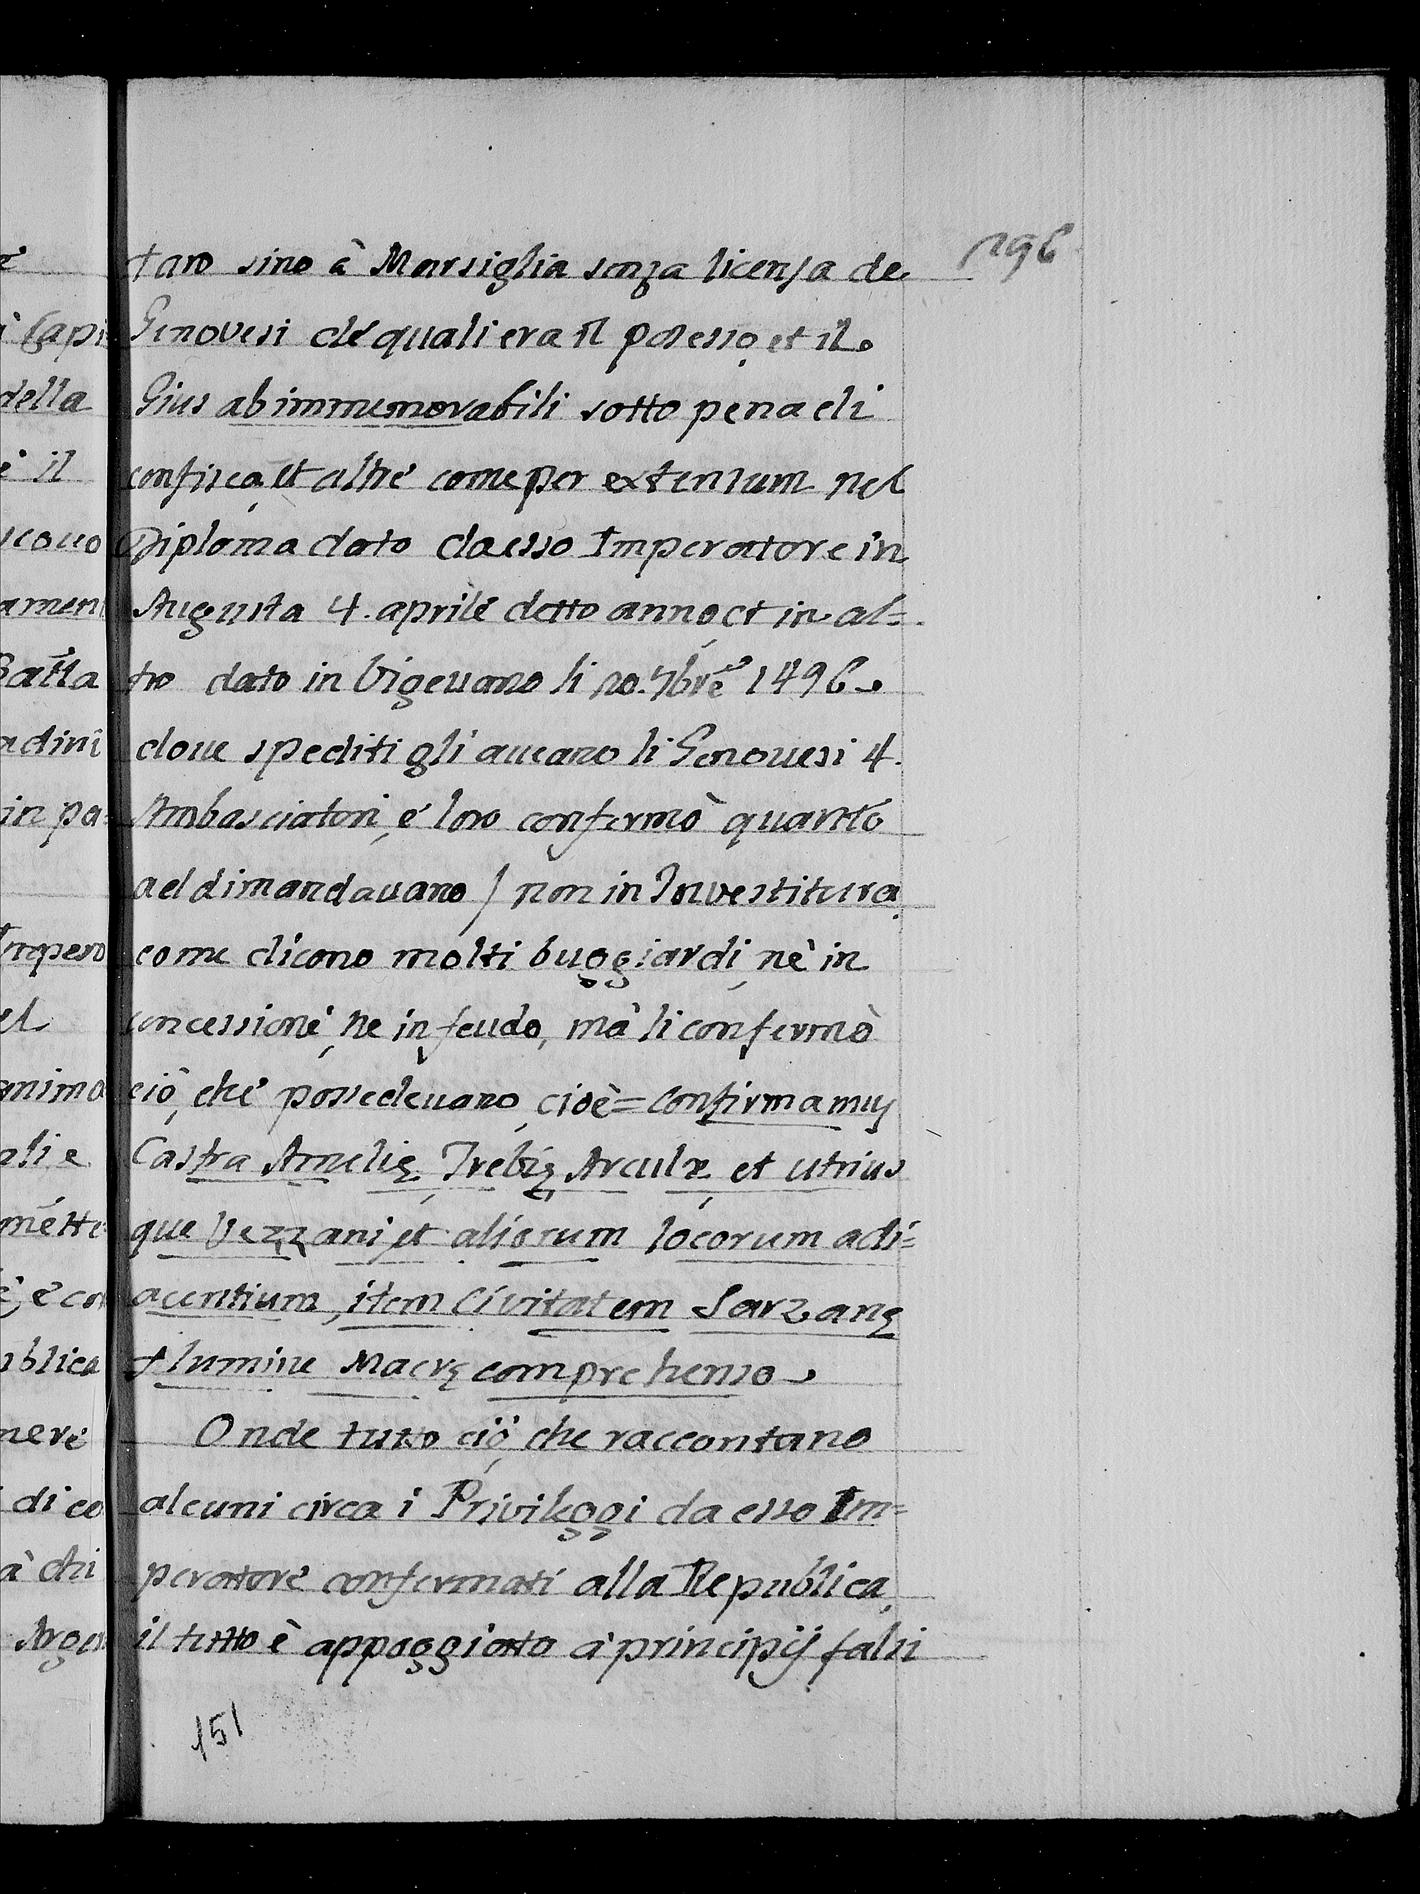 296
taro sino à Marsiglia senza licenza de
Genovesi de quali era il possesso, et il
Gius ab immemorabili sotto pena di
confisca, et altre come per extensum nel
Diploma dato da esso Imperatore in
Augusta 4. aprile detto anno, et in al=
tro dato in Vigevano li 20. 7bre 1496
doue spediti gli aueano li Genouesi 4.
Ambasciatori, e loro confermò quanto
addimandauano / non in Investitura,
come dicono molti buggiardi, nè in
concessione, ne in feudo, mà li confermò
ciò, che possedeuano, cioè = Confirmamus
Castra Amelię, Trebię, Arculæ, et utrius
que Vezzani, et aliorum locorum adi=
acentium, item Civitatem Sarzanę
flumine Macrę comprehenso
Onde tutto ciò, che raccontano
alcuni circa i Privileggi da esso Im=
peratore confermati alla Republica,
il tutto è appoggiato à principij falsi
151
della
è il
Batta
adini
in pa=
Impero
el
anima
ali e
mette
e con
ublica
nere
di co
à chi